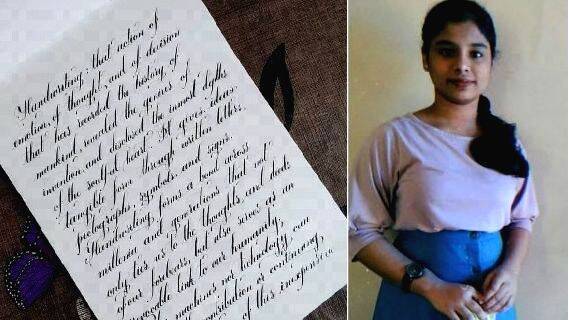 Handwriting: that action of
emotion, of thought, and of decision
that has recorded the history of
mankind, revealed the genius of
invention, and disclosed the inmost depths
of the soulful heart. It gives ideas
tangible form through written letters,
pictographs, symbols, and signs.
Handwriting forms a bond across
millennia and generations that not
only ties us to the thoughts and deeds
of our forebears, but also serves as an
irrevocable link to our humanity.
machines nor technology can
contribution or continuing
of this inexpensive